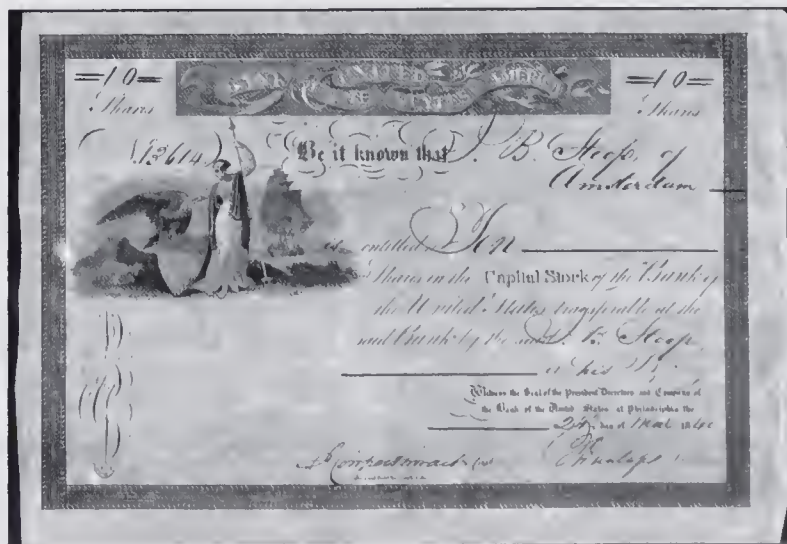 =10=
=10=
Shares
Shares
UNITED AMERICA
12614
Be it known that
B. Stoop of
Amsterdam
is entitled to Ten
Shares in the Capital Stock of the Bank of
the United States, transferable at the
said Bank by the said
B. Stoop
his
Witness the Seal of the President Directors and Company of
the Bank of the United States at Philadelphia the
day of